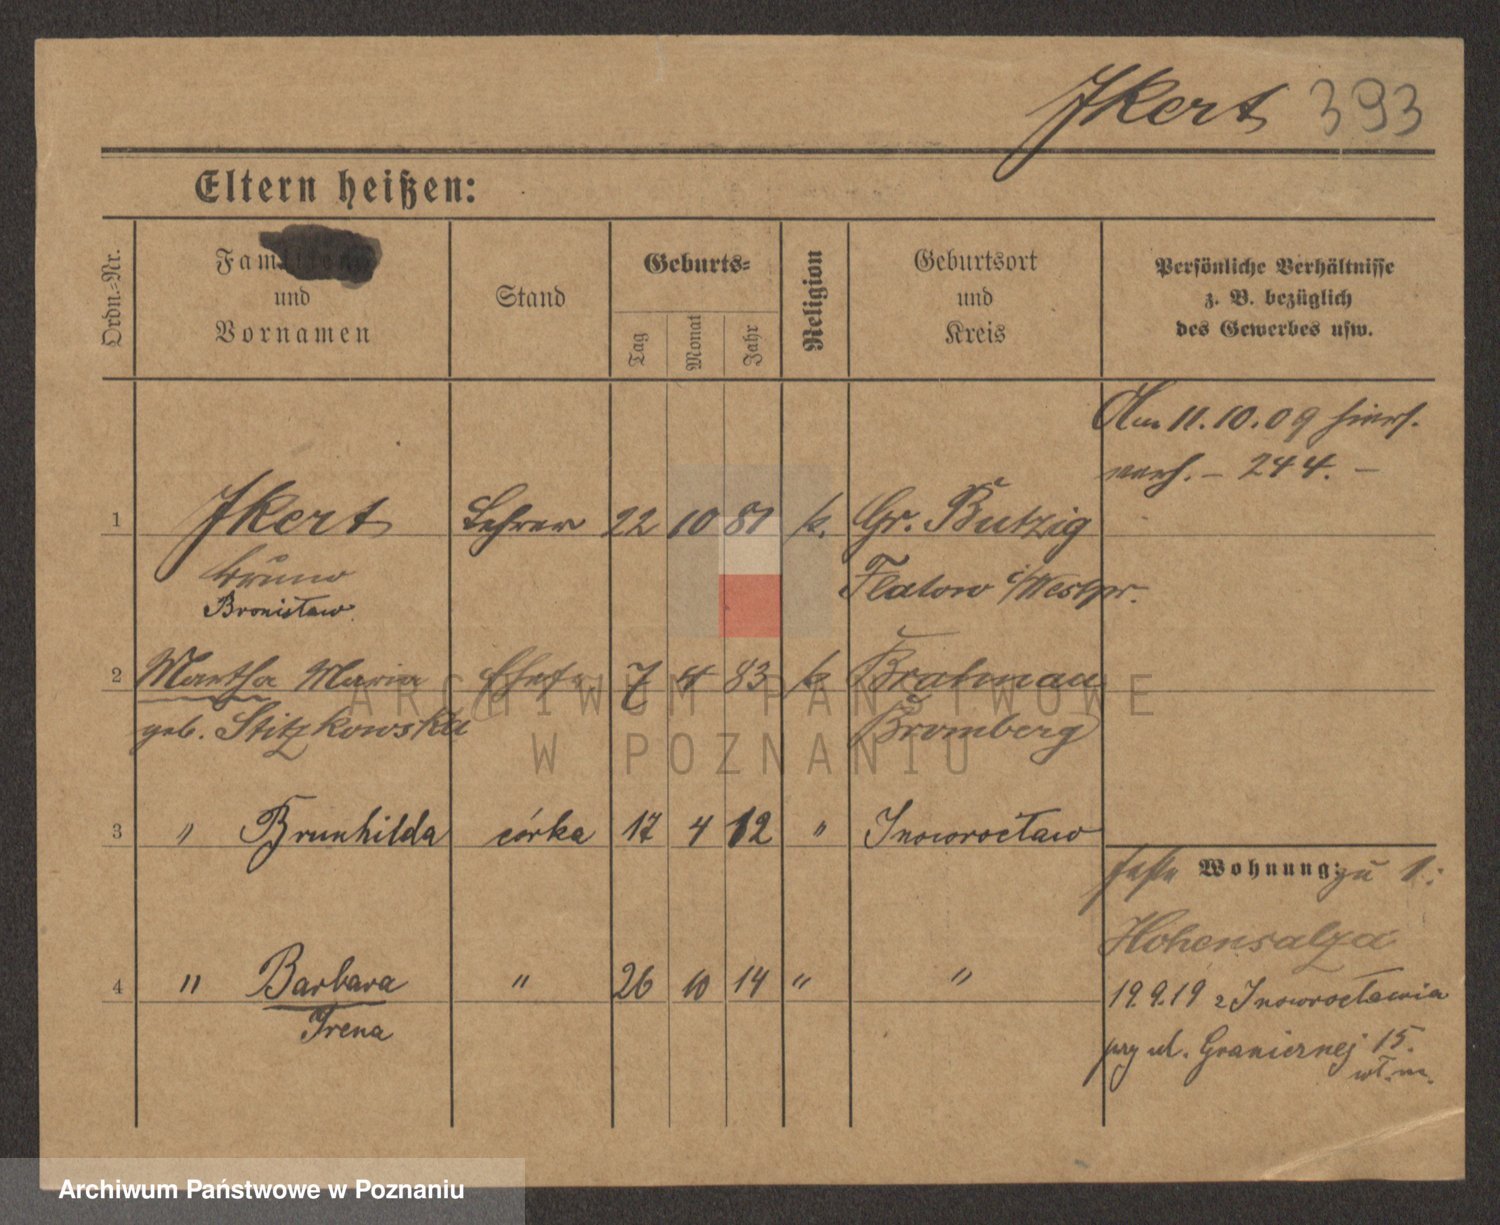 Ikert 393
Eltern heißen:
Ordn.-Nr.
Familien-
und
Vornamen
Stand
Geburts-
Tag
Monat
Jahr
Religion
Geburtsort
und
Kreis
Persönliche Verhältnisse
z. B. bezüglich
des Gewerbes usw.
Am 11.10.09 hiers.
verh. – 244. –
1 Ikert Lehrer 22 10 81 k. Gr. Butzig
Bruno
Bronisław.
Flatow i/Westpr.
2 Martha Maria Ehefr 7 4 83 k Brahnau
geb. Stitzkowska Bromberg
3 " Brunhilda córka 17 4 12 " Inowrocław
feste Wohnung: zu 1:
Hohensalza
4 " Barbara " 26 10 14 " "
Irena
19.9.19 z Inowrocławia
przy ul. Granicznej 15.
wł. m.
ARCHIWUM PAŃSTWOWE
W POZNANIU
Archiwum Państwowe w Poznaniu